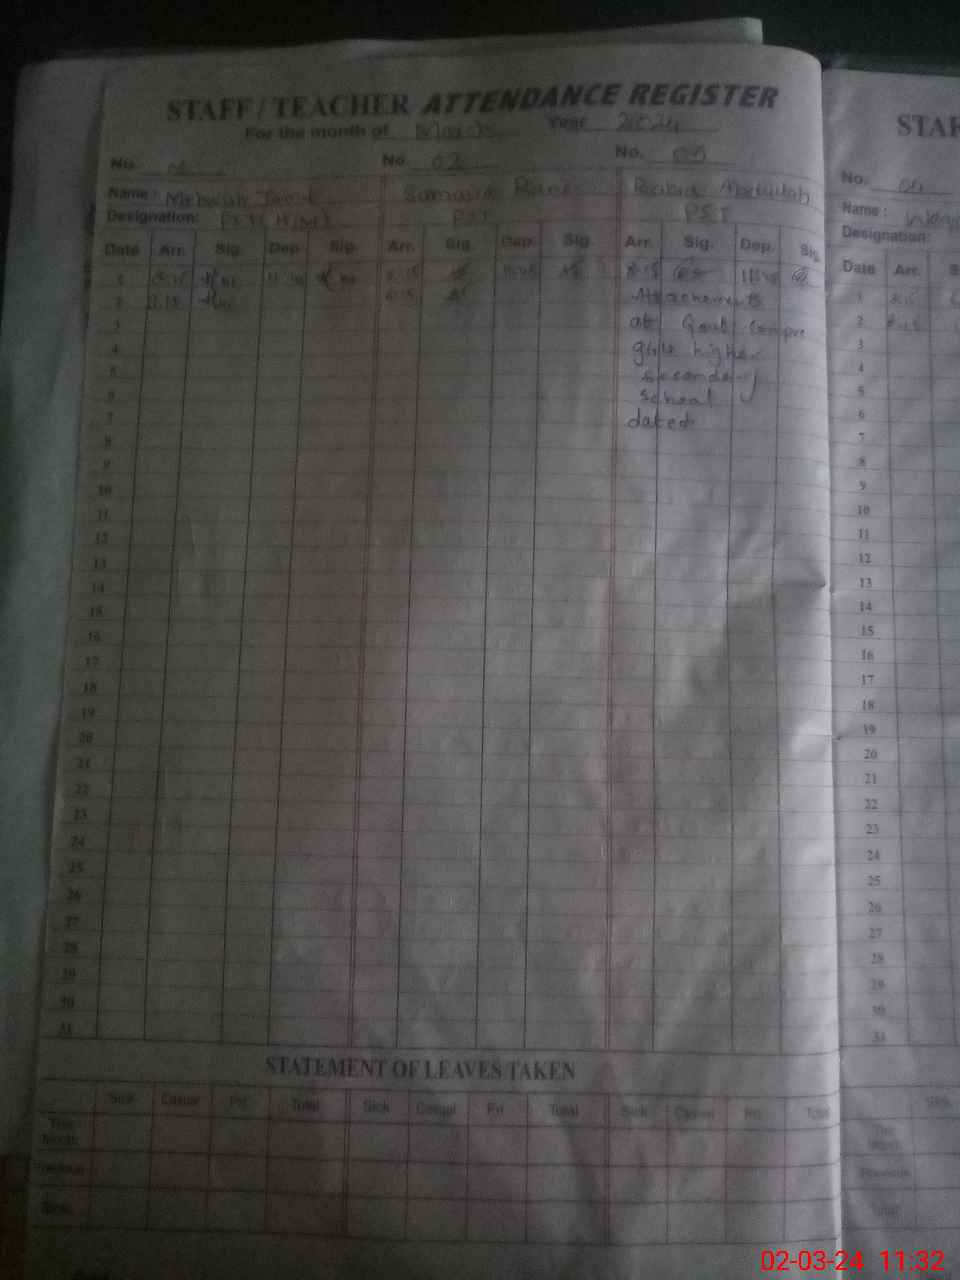 STAFF / TEACHER ATTENDANCE REGISTER
For the month of March Year 2024
No. No. 02 No. 03
Name : Samaira Abdullah
Designation: PST PST PST
Date Arr. Sig. Dep. Sig. Arr. Sig. Dep. Sig. Arr. Sig. Dep. Sig.
1 8:15 11:45 8:15 11:45 8:15 11:45
2 8:15 8:15 Attachment
3 at Govt
4 girls higher
5 secondary
6 school
7 dated
8
9
10
11
12
13
14
15
16
17
18
19
20
21
22
23
24
25
26
27
28
29
30
31
STATEMENT OF LEAVES TAKEN
Sick Casual Pri Total Sick Casual Pri Total Sick Casual Pri Total
This Month
Previous
STAF
No. 04
Name :
Designation:
Date Arr. S
1 8:15
2 8:15
3
4
5
6
7
8
9
10
11
12
13
14
15
16
17
18
19
20
21
22
23
24
25
26
27
28
29
30
31
Sick
This Month
Previous
Total
02-03-24 11:32